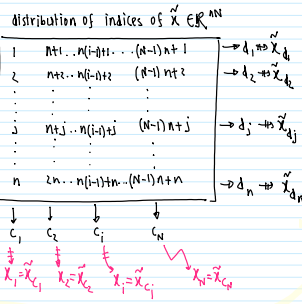 distribution of indices of x̃ ∈ ℝⁿᴺ
1 n+1 ... n(i-1)+1 ... (N-1)n+1 → d₁ ⇻ x̃_d₁
2 n+2 ... n(i-1)+2 (N-1)n+2 → d₂ ⇻ x̃_d₂
j n+j ... n(i-1)+j (N-1)n+j → dⱼ ⇻ x̃_dⱼ
n 2n ... n(i-1)+n ... (N-1)n+n → dₙ ⇻ x̃_dₙ
C₁ C₂ Cᵢ C_N
x₁=x̃_C₁ x₂=x̃_C₂ xᵢ=x̃_Cᵢ x_N=x̃_C_N